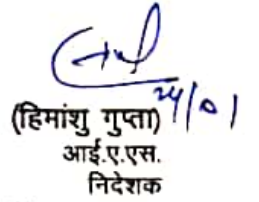 24/01
(हिमांशु गुप्ता)
आई.ए.एस.
निदेशक